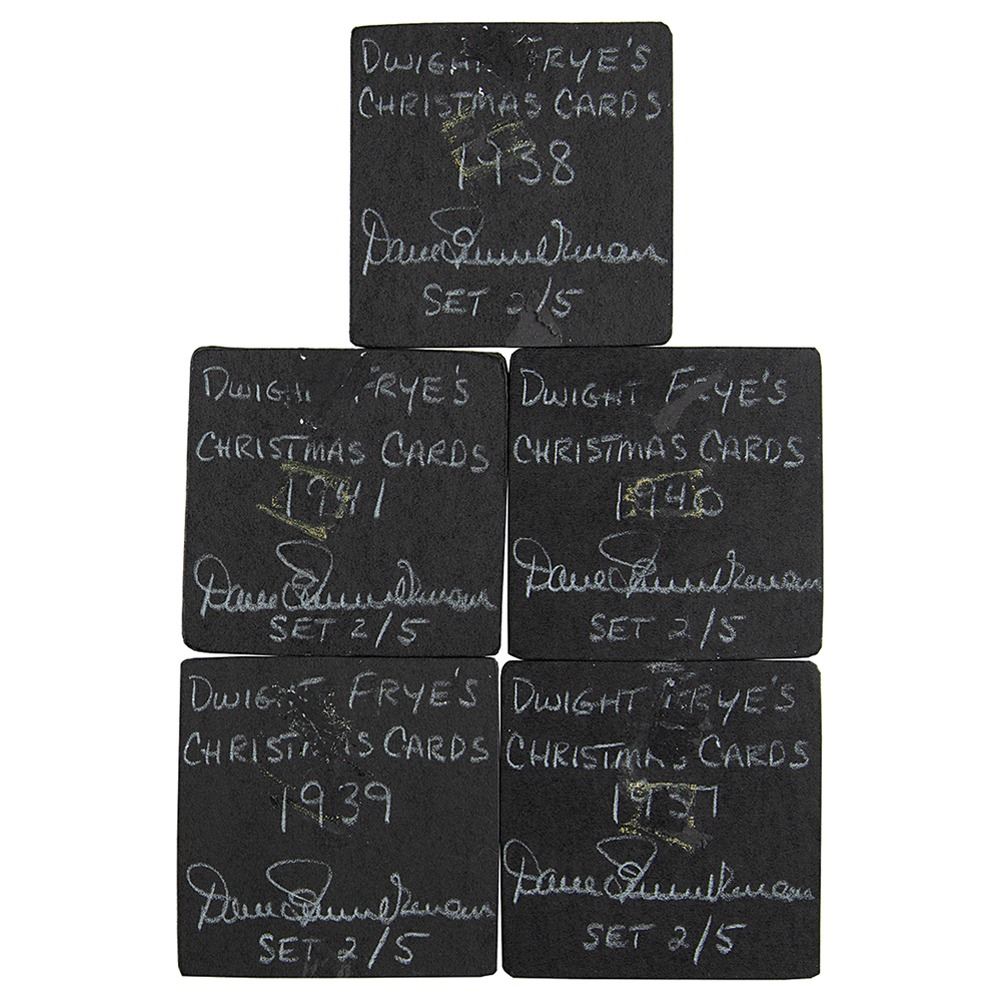 DWIGHT FRYE'S
CHRISTMAS CARDS
1938
Dave
SET 2/5
DWIGHT FRYE'S
CHRISTMAS CARDS
1941
Dave
SET 2/5
DWIGHT FRYE'S
CHRISTMAS CARDS
1940
Dave
SET 2/5
DWIGHT FRYE'S
CHRISTMAS CARDS
1939
Dave
SET 2/5
DWIGHT FRYE'S
CHRISTMAS CARDS
1937
Dave
SET 2/5